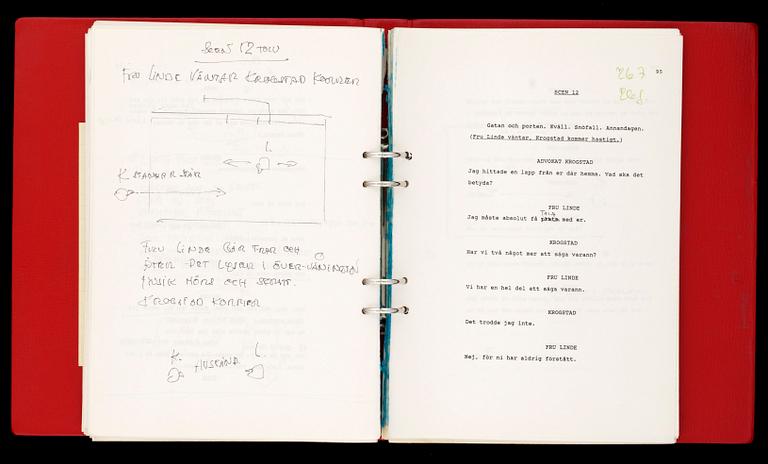 SCEN 12
FRU LINDE VÄNTAR KROGSTAD KOMMER
L.
K.
FRU LINDE GÅR FRAM OCH
ÅTER - DET LYSER I ÖVER-VÅNINGEN
MUSIK HÖRS OCH SKRATT.
KROGSTAD KOMMER
K. L.
267 95
268.
SCEN 12
Gatan och porten. Kväll. Snöfall. Annandagen.
(Fru Linde väntar. Krogstad kommer hastigt.)
ADVOKAT KROGSTAD
Jag hittade en lapp från er där hemma. Vad ska det
betyda?
FRU LINDE
TALA
Jag måste absolut få prata med er.
KROGSTAD
Har vi två något mer att säga varann?
FRU LINDE
Vi har en hel del att säga varann.
KROGSTAD
Det trodde jag inte.
FRU LINDE
Nej, för ni har aldrig förstått.